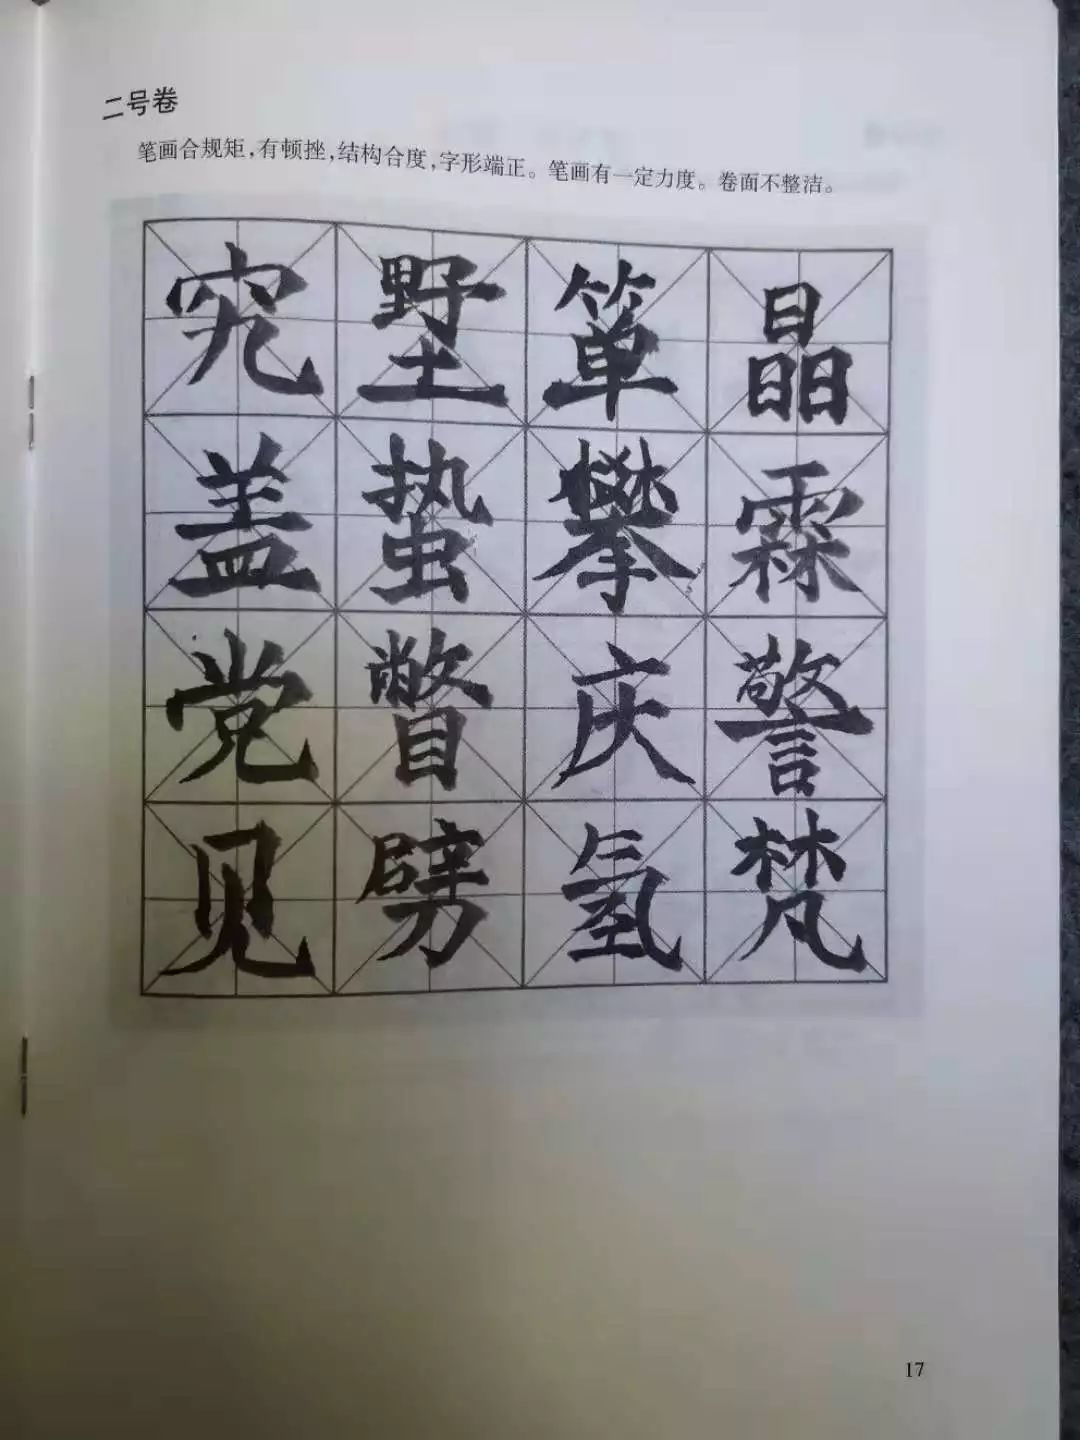 二号卷
笔画合规矩,有顿挫,结构合度,字形端正。笔画有一定力度。卷面不整洁。
究墅箪晶
盖蛰攀霖
党瞥庆警
见劈氢梵
17